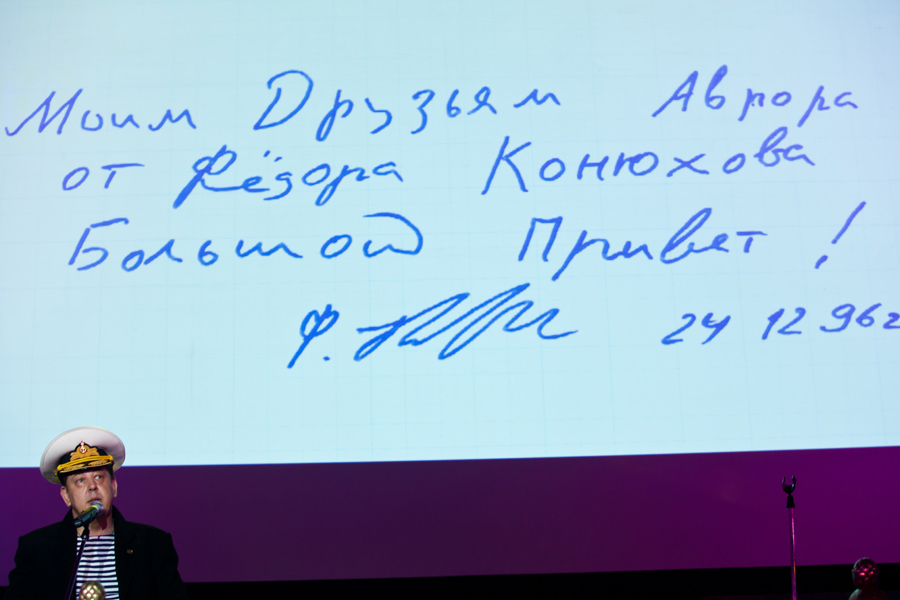 Моим Друзьям Аврора
от Фёдора Конюхова
Большой Привет !
Ф. 24 12 96г